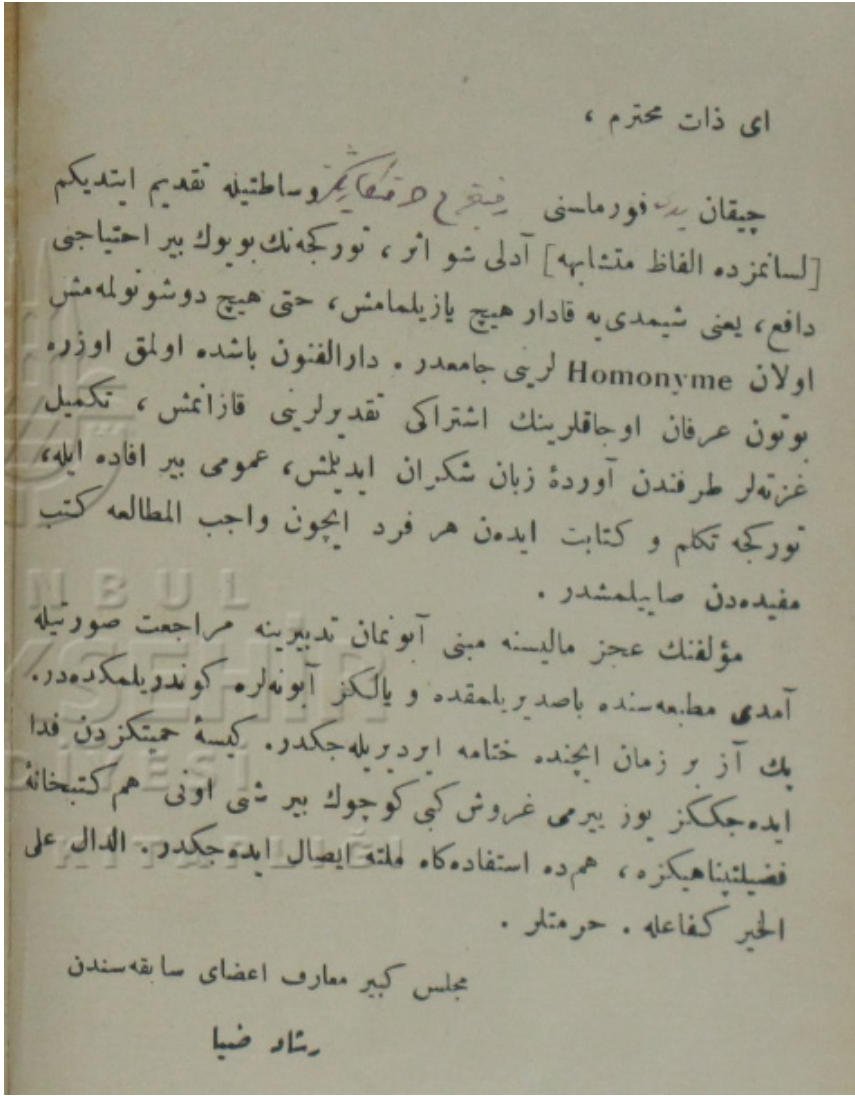 ای ذات محترم ،
چیقان فورماسنی وساطتیله تقدیم ایتدیكم
[لسانمزده الفاظ متشابهه] آدلی شو اثر ، تورکجه‌نك بویوك بیر احتیاجنی
دافع، یعنی شیمدی‌یه قادار هیچ یازیلمامش، حتی هیچ دوشونولمه‌مش
اولان Homonyme لرینی جامعدر . دارالفنون باشده اولمق اوزره
بوتون عرفان اوجاقلرینك اشتراکی تقدیرلرینی قازانمش ، تکمیل
غزته‌لر طرفندن آوردهٔ زبان شکران ایدیلمش، عمومی بیر افاده ایله،
تورکجه تکلم و کتابت ایده‌ن هر فرد ایچون واجب المطالعه کتب
مفیده‌دن صاییلمشدر .
مؤلفنك عجز مالیسنه مبنی آبونمان تدبیرینه مراجعت صورتیله
آمدی مطبعه‌سنده باصدیریلمقده و یالكز آبونه‌لره کوندریلمکده‌در.
پك آز بر زمان ایچنده ختامه ایردیریله‌جکدر. کیسهٔ حمیتکزدن فدا
ایده‌جککز یوز بیرمی غروش کبی کوچوك بیر شی اونی هم کتبخانهٔ
فضیلتپناهیکزه ، هم‌ده استفاده‌کاه ملته ایصال ایده‌جکدر. الدال علی
الخیر کفاعله . حرمتلر .
مجلس کبیر معارف اعضای سابقه‌سندن
رشاد ضیا
İSTANBUL
BÜYÜKŞEHİR
BELEDİYESİ
KİTAPLIĞI